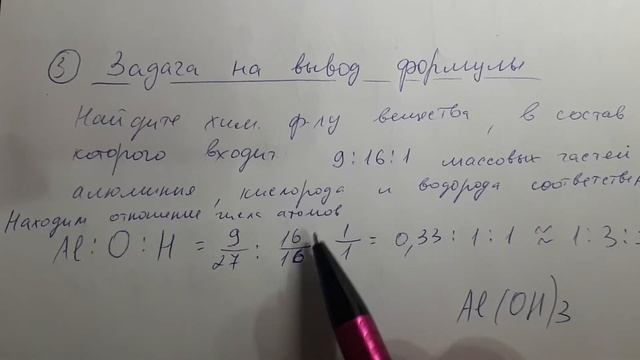 ③ Задача на вывод формулы
Найдите хим. ф-лу вещества, в состав
которого входит 9:16:1 массовых частей
алюминия, кислорода и водорода соответствен
Находим отношение числа атомов
Al : O : H = 9/27 : 16/16 1/1 = 0,33 : 1 : 1 ≈ 1 : 3 :
Al(OH)3